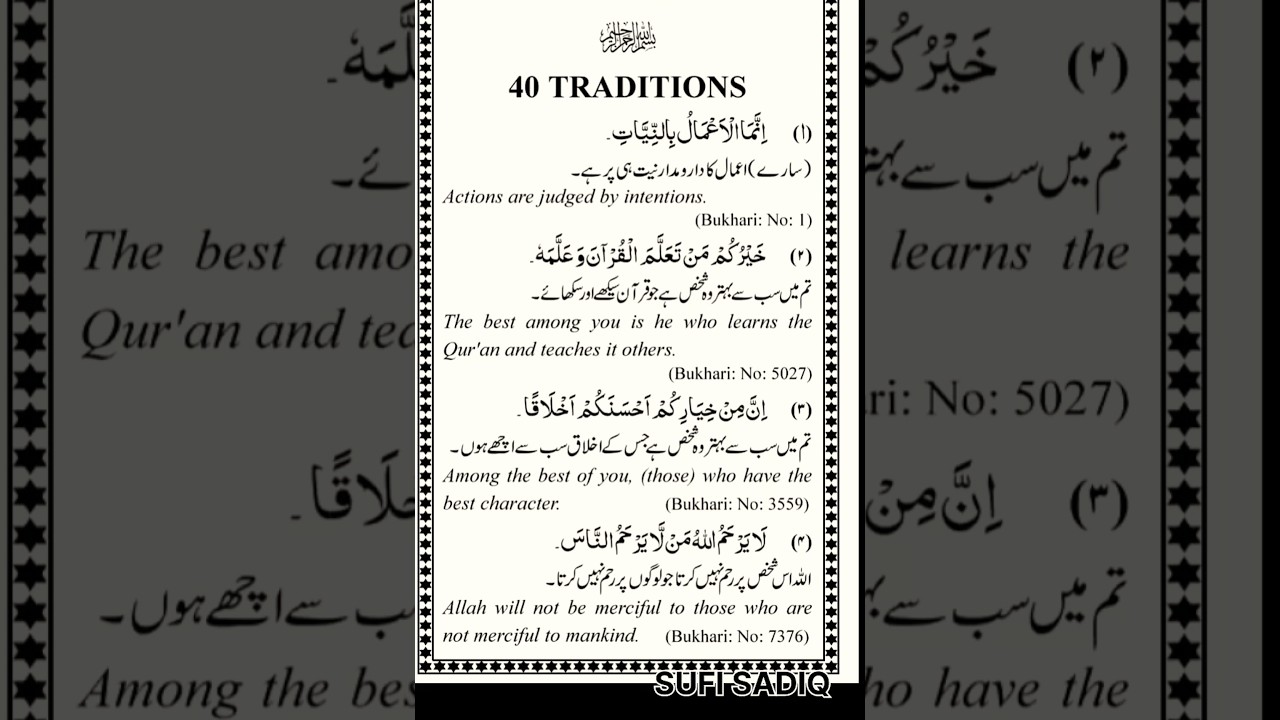 بسم الله الرحمن الرحيم
40 TRADITIONS
(۱) اِنَّمَا الْاَعْمَالُ بِالنِّيَّاتِ۔
(سارے) اعمال کا دارومدار نیت ہی پر ہے۔
Actions are judged by intentions.
(Bukhari: No: 1)
(۲) خَيْرُكُمْ مَنْ تَعَلَّمَ الْقُرْآنَ وَعَلَّمَهٗ۔
تم میں سب سے بہتر وہ شخص ہے جو قرآن سیکھے اور سکھائے۔
The best among you is he who learns the
Qur'an and teaches it others.
(Bukhari: No: 5027)
(۳) اِنَّ مِنْ خِيَارِكُمْ اَحْسَنَكُمْ اَخْلَاقًا۔
تم میں سب سے بہتر وہ شخص ہے جس کے اخلاق سب سے اچھے ہوں۔
Among the best of you, (those) who have the
best character. (Bukhari: No: 3559)
(۴) لَا يَرْحَمُ اللهُ مَنْ لَّا يَرْحَمُ النَّاسَ۔
اللہ اس شخص پر رحم نہیں کرتا جو لوگوں پر رحم نہیں کرتا۔
Allah will not be merciful to those who are
not merciful to mankind. (Bukhari: No: 7376)
SUFI SADIQ